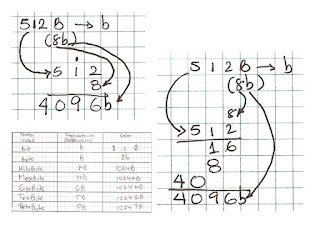 512B → b
(8b)
1
5 1 2
8
4096b
bit b 1 0 0
Byte B 8b
KiloByte KB 1024B
MegaByte MB 1024KB
GigaByte GB 1024MB
TeraByte TB 1024GB
PetaByte PB 1024TB
512B → b
(8b)
8
5 1 2
1 6
8
40
4096b